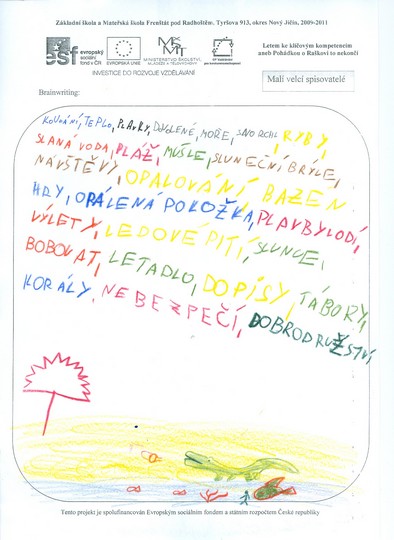 Základní škola a Mateřská škola Frenštát pod Radhoštěm, Tyršova 913, okres Nový Jičín, 2009-2011
esf evropský sociální fond v ČR EVROPSKÁ UNIE MINISTERSTVO ŠKOLSTVÍ, MLÁDEŽE A TĚLOVÝCHOVY
INVESTICE DO ROZVOJE VZDĚLÁVÁNÍ
Letem ke klíčovým kompetencím
aneb Pohádkou o Raškovi to nekončí
Malí velcí spisovatelé
Brainwriting:
KOUPÁNÍ, TEPLO, PLAVKY, DOVOLENÉ, MOŘE, ŠNORCHL, RYBY,
SLANÁ VODA, PLÁŽ, MUŠLE, SLUNEČNÍ BRÝLE,
NÁVŠTĚVY, OPALOVÁNÍ BAZEN
HRY, OPÁLENÁ POKOŽKA, PLAVBY LODÍ,
VÝLETY, LEDOVÉ PITÍ, SLUNCE,
BOBOVAT, LETADLO, DOPISY, TÁBORY,
KORÁLY, NEBEZPEČÍ, DOBRODRUŽSTVÍ
Tento projekt je spolufinancován Evropským sociálním fondem a státním rozpočtem České republiky